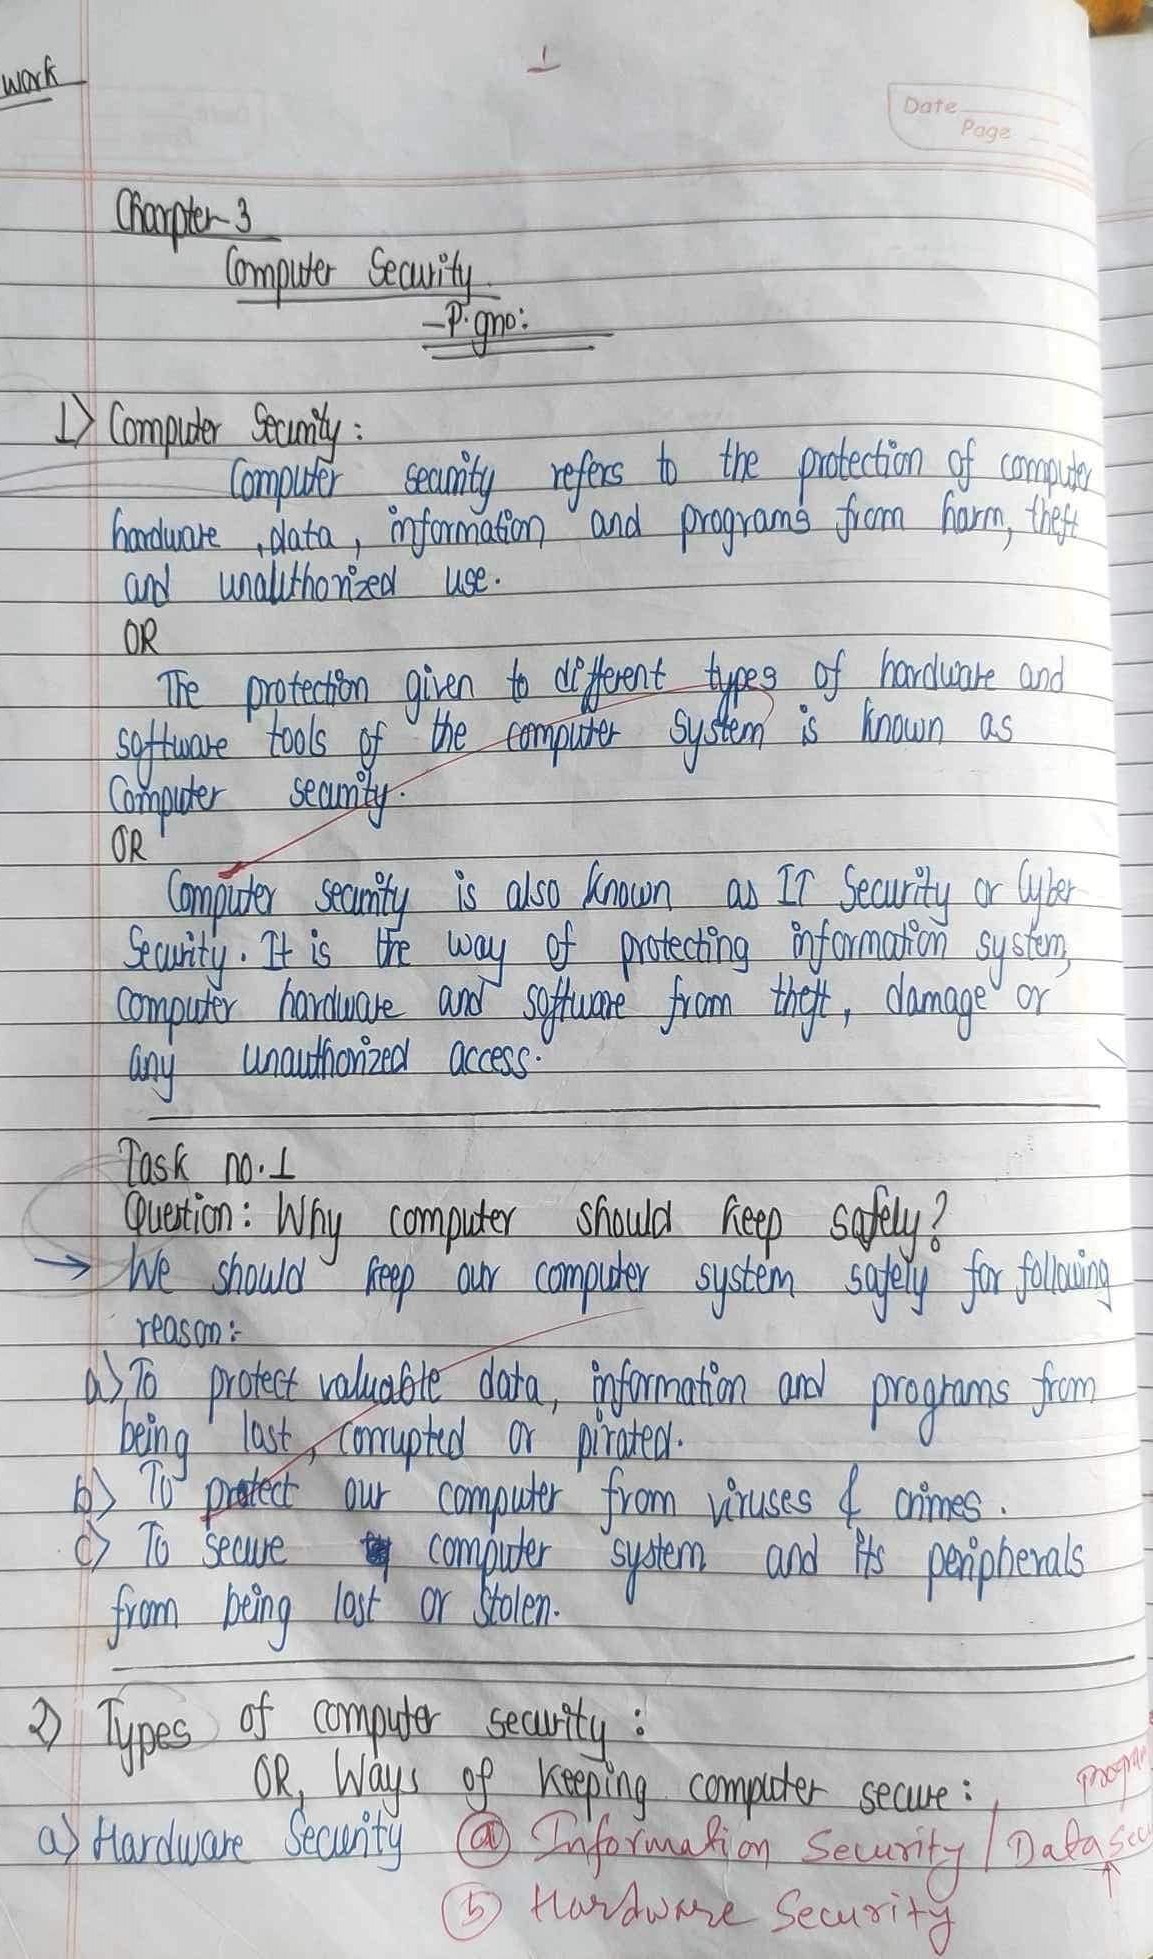 work
1
Date
Page
Charpter-3
Computer Security
-P.gno:
1) Computer Security:
Computer security refers to the protection of computer
hardware, data, information and programs from harm, theft
and unauthorized use.
OR
The protection given to different types of hardware and
software tools of the computer system is known as
Computer security.
OR
Computer security is also known as IT Security or Cyber
Security. It is the way of protecting information system,
computer hardware and software from theft, damage or
any unauthorized access.
Task no.1
Question: Why computer should keep safely?
→ We should keep our computer system safely for following
reason:-
a) To protect valuable data, information and programs from
being lost, corrupted or pirated.
b) To protect our computer from viruses & crimes.
c) To secure computer system and its peripherals
from being lost or stolen.
2) Types of computer security:
OR, Ways of keeping computer secure:
program
a) Hardware Security (a) Information Security / Data Sec
(b) Hardware Security